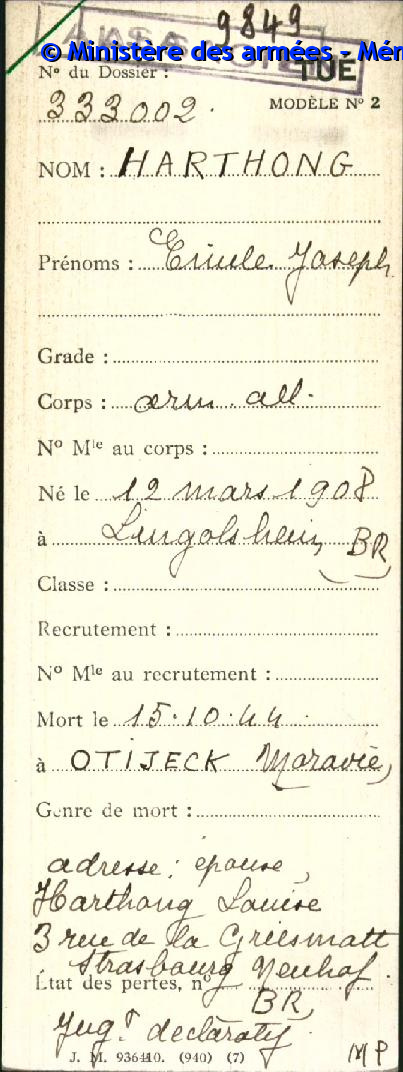 9849
© Ministère des armées - Mém
TUÉ
Nº du Dossier :
333002.
MODÈLE Nº 2
NOM : HARTHONG
Prénoms : Emile Joseph
Grade :
Corps : arm. all.
Nº Mle au corps :
Né le 12 mars 1908
à Lingolsheim, BR
Classe :
Recrutement :
Nº Mle au recrutement :
Mort le 15.10.44
à OTIJECK Moravie
Genre de mort :
adresse : épouse,
Harthong Louise
3 rue de la Griesmatt
Strasbourg Neuhof.
État des pertes, nº
BR
Jugt déclaratif
J. M. 936410. (940) (7)
MP